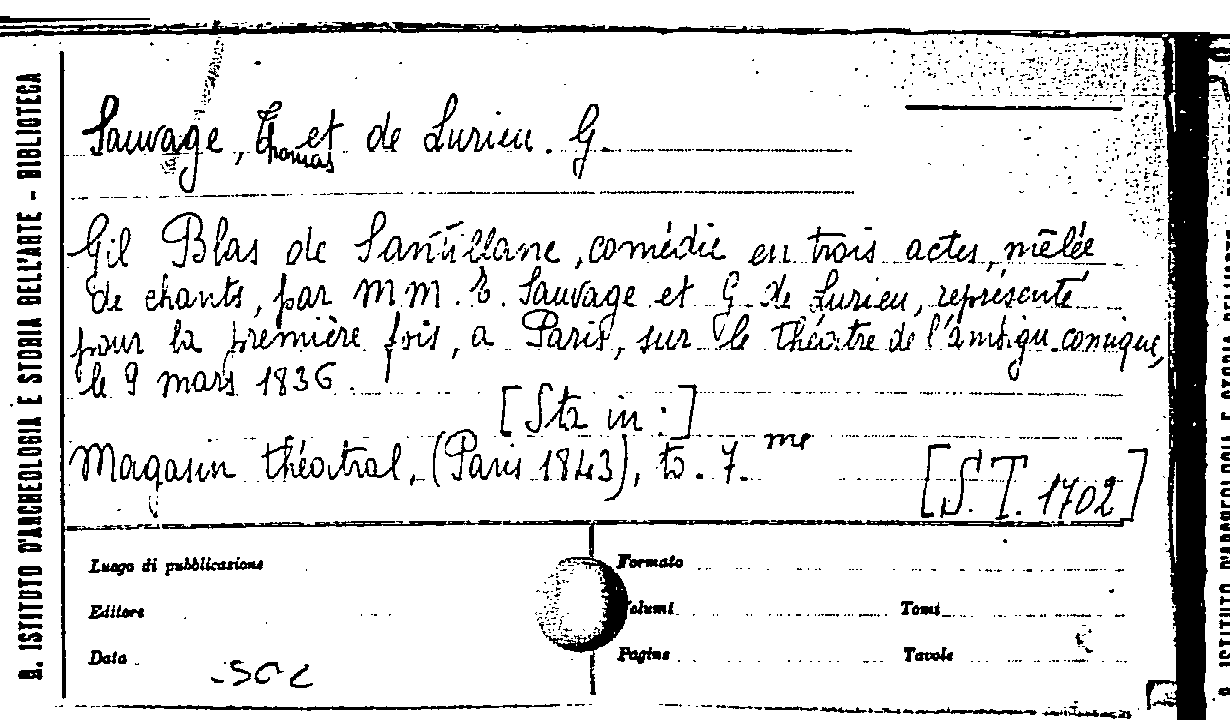 R. ISTITUTO D'ARCHEOLOGIA E STORIA DELL'ARTE - BIBLIOTECA
Sauvage, Thomas et de Lurieu. G.
Gil Blas de Santillane, comédie en trois actes, mêlée
de chants, par MM. T. Sauvage et G. de Lurieu, représenté
pour la première fois, a Paris, sur le théatre de l'ambigu-comique,
le 9 mars 1836.
[Sta in:]
Magasin théatral, (Paris 1843), to. 7.me
[S. T. 1702]
Luogo di pubblicazione
Formato
Editore
Volumi
Tomi
Data
Pagine
Tavole